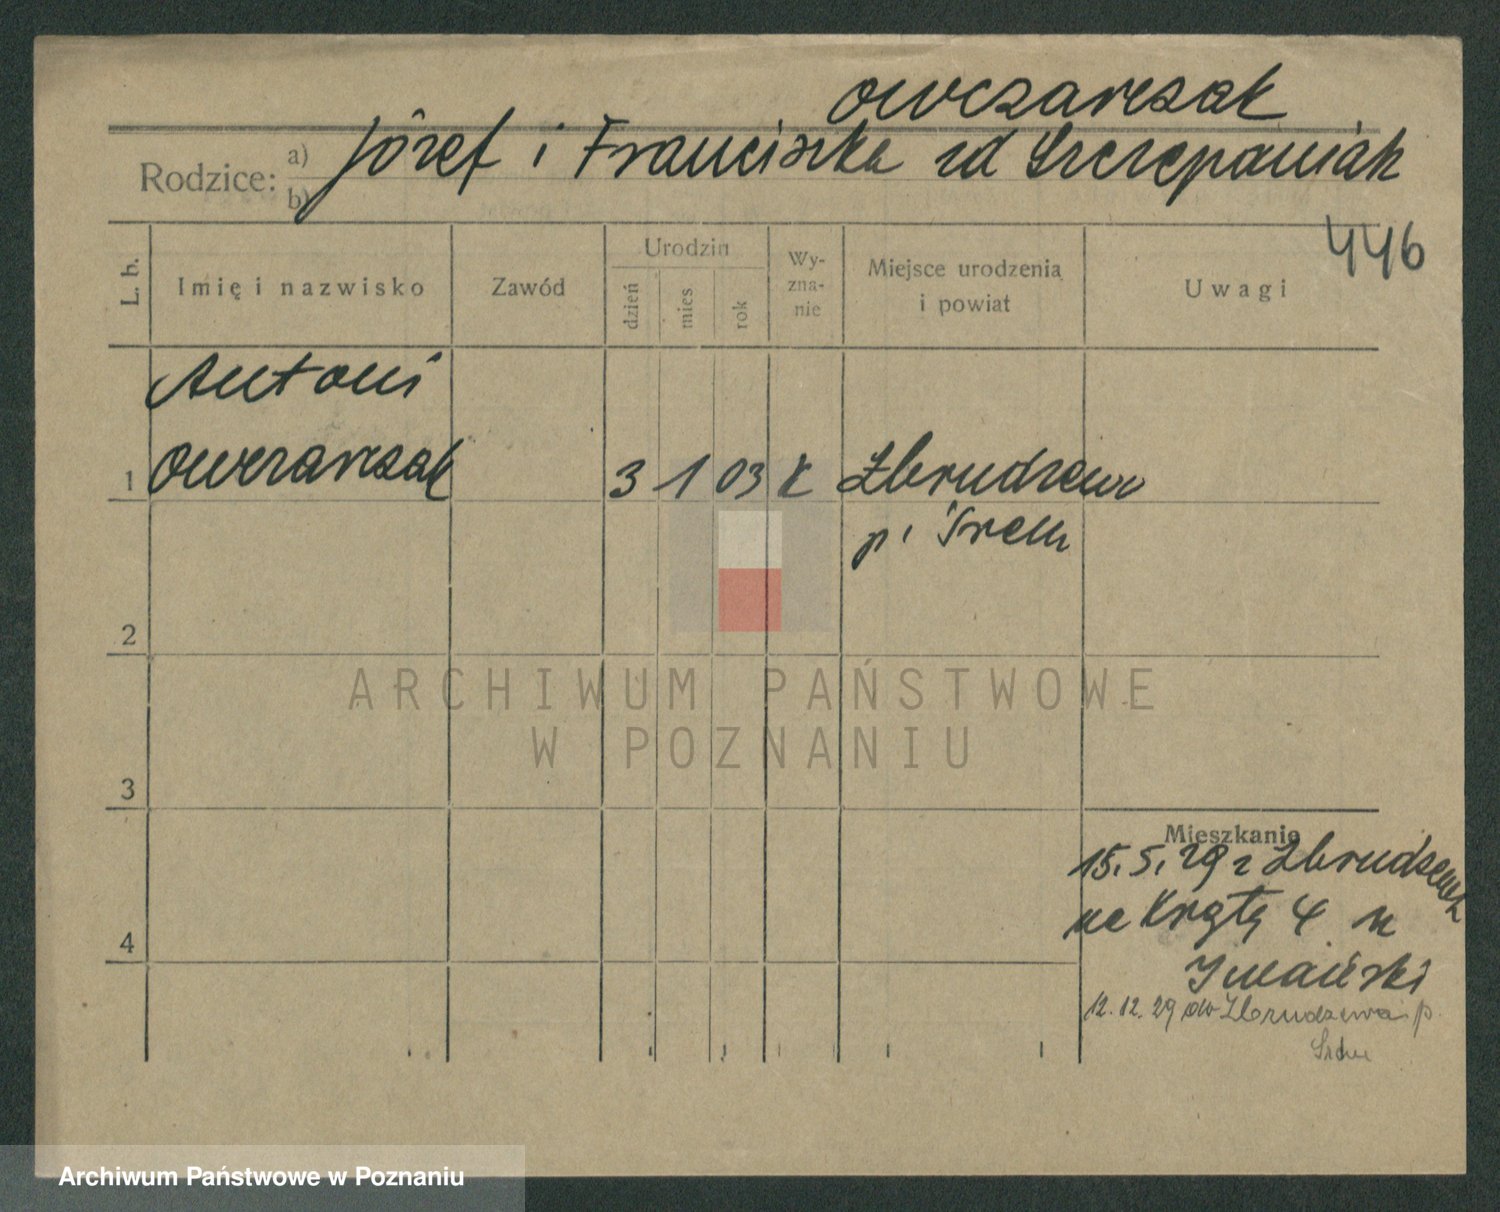 Owczarczak
Rodzice: a) Józef i Franciszka zd Szczepaniak
b)
446
L. b.
Imię i nazwisko
Zawód
Urodzin
dzień
mies
rok
Wy-
zna-
nie
Miejsce urodzenia
i powiat
Uwagi
Antoni
1 Owczarczak 3 1 03 k Zbrudzewo
p. Śrem
2
3
4
Mieszkanie
15.5.29 z Zbrudzewa
na Krętą 4 u
12.12.29 do Zbrudzewa p.
Śrem
ARCHIWUM PAŃSTWOWE
W POZNANIU
Archiwum Państwowe w Poznaniu